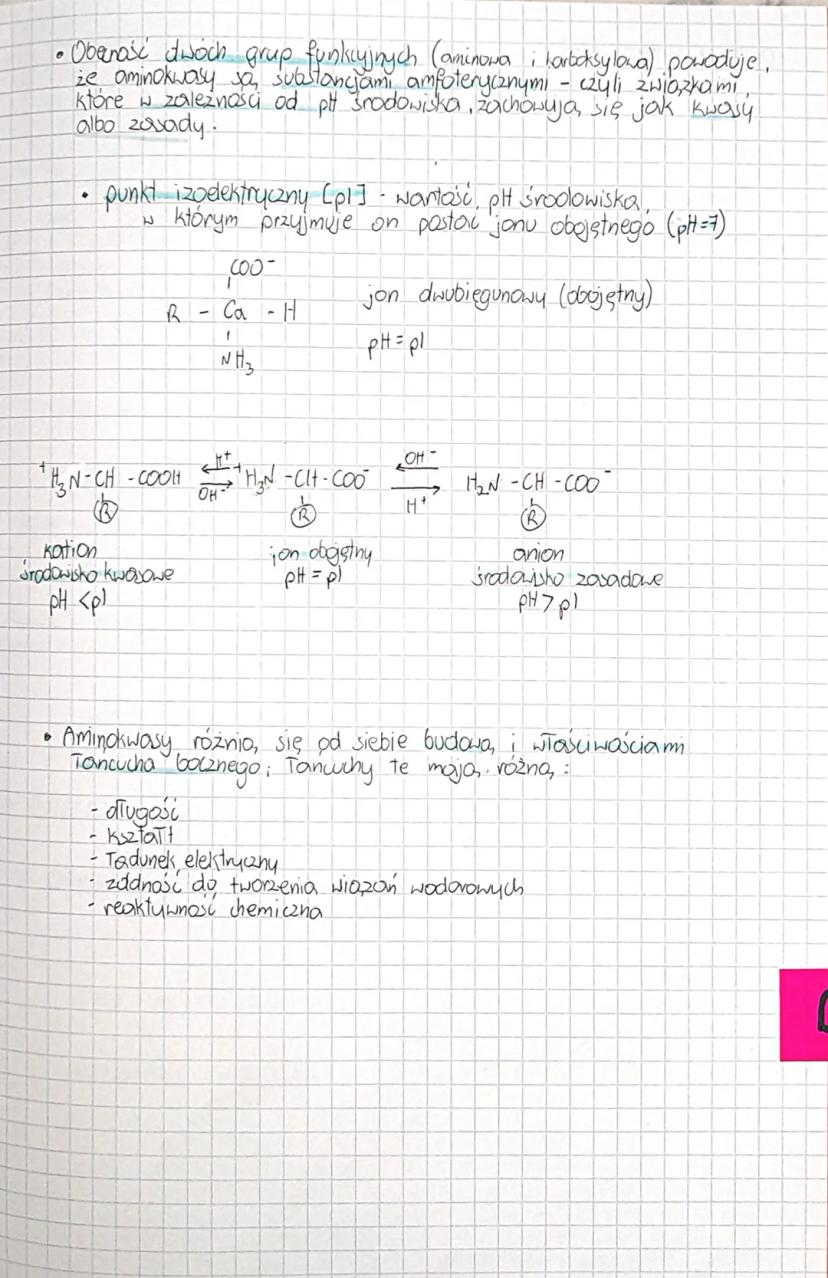 • Obecność dwóch grup funkcyjnych (aminowa i karboksylowa) powoduje,
że aminokwasy są substancjami amfoterycznymi - czyli związkami,
które w zależności od pH środowiska, zachowują się jak kwasy
albo zasady.
• punkt izoelektryczny [pI] - wartość pH środowiska,
w którym przyjmuje on postać jonu obojętnego (pH=7)
COO⁻
R - Ca - H
NH₃
jon dwubiegunowy (obojętny)
pH = pI
⁺H₃N-CH-COOH ⇄ ⁺H₃N-CH-COO⁻ ⇄ H₂N-CH-COO⁻
H⁺ OH⁻
OH⁻ H⁺
R R R
kation jon obojętny anion
środowisko kwasowe pH = pI środowisko zasadowe
pH < pI pH > pI
• Aminokwasy różnią się od siebie budową i właściwościami
łańcucha bocznego; łańcuchy te mają różną:
- długość
- kształt
- ładunek elektryczny
- zdolność do tworzenia wiązań wodorowych
- reaktywność chemiczna